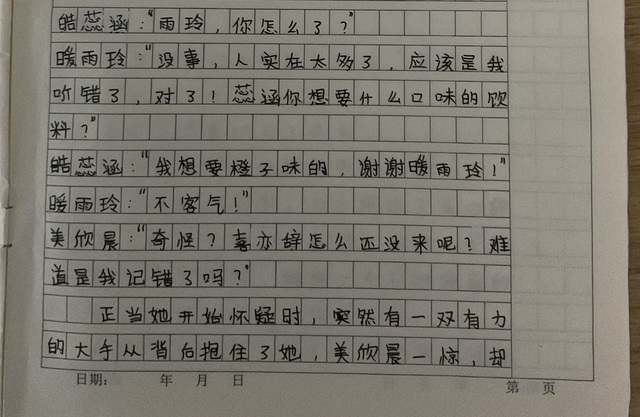 皓蕊涵：“雨玲，你怎么了？”
暖雨玲：“没事，人实在太多了，应该是我
听错了，对了！蕊涵你想要什么口味的饮
料？”
皓蕊涵：“我想要橙子味的，谢谢暖雨玲！”
暖雨玲：“不客气！”
美欣晨：“奇怪？喜亦辞怎么还没来呢？难
道是我记错了吗？”
正当她开始怀疑时，突然有一双有力
的大手从背后抱住了她，美欣晨一惊，却
日期： 年 月 日
第 页